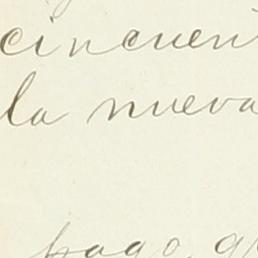 cincuen
la nueva
pago, g